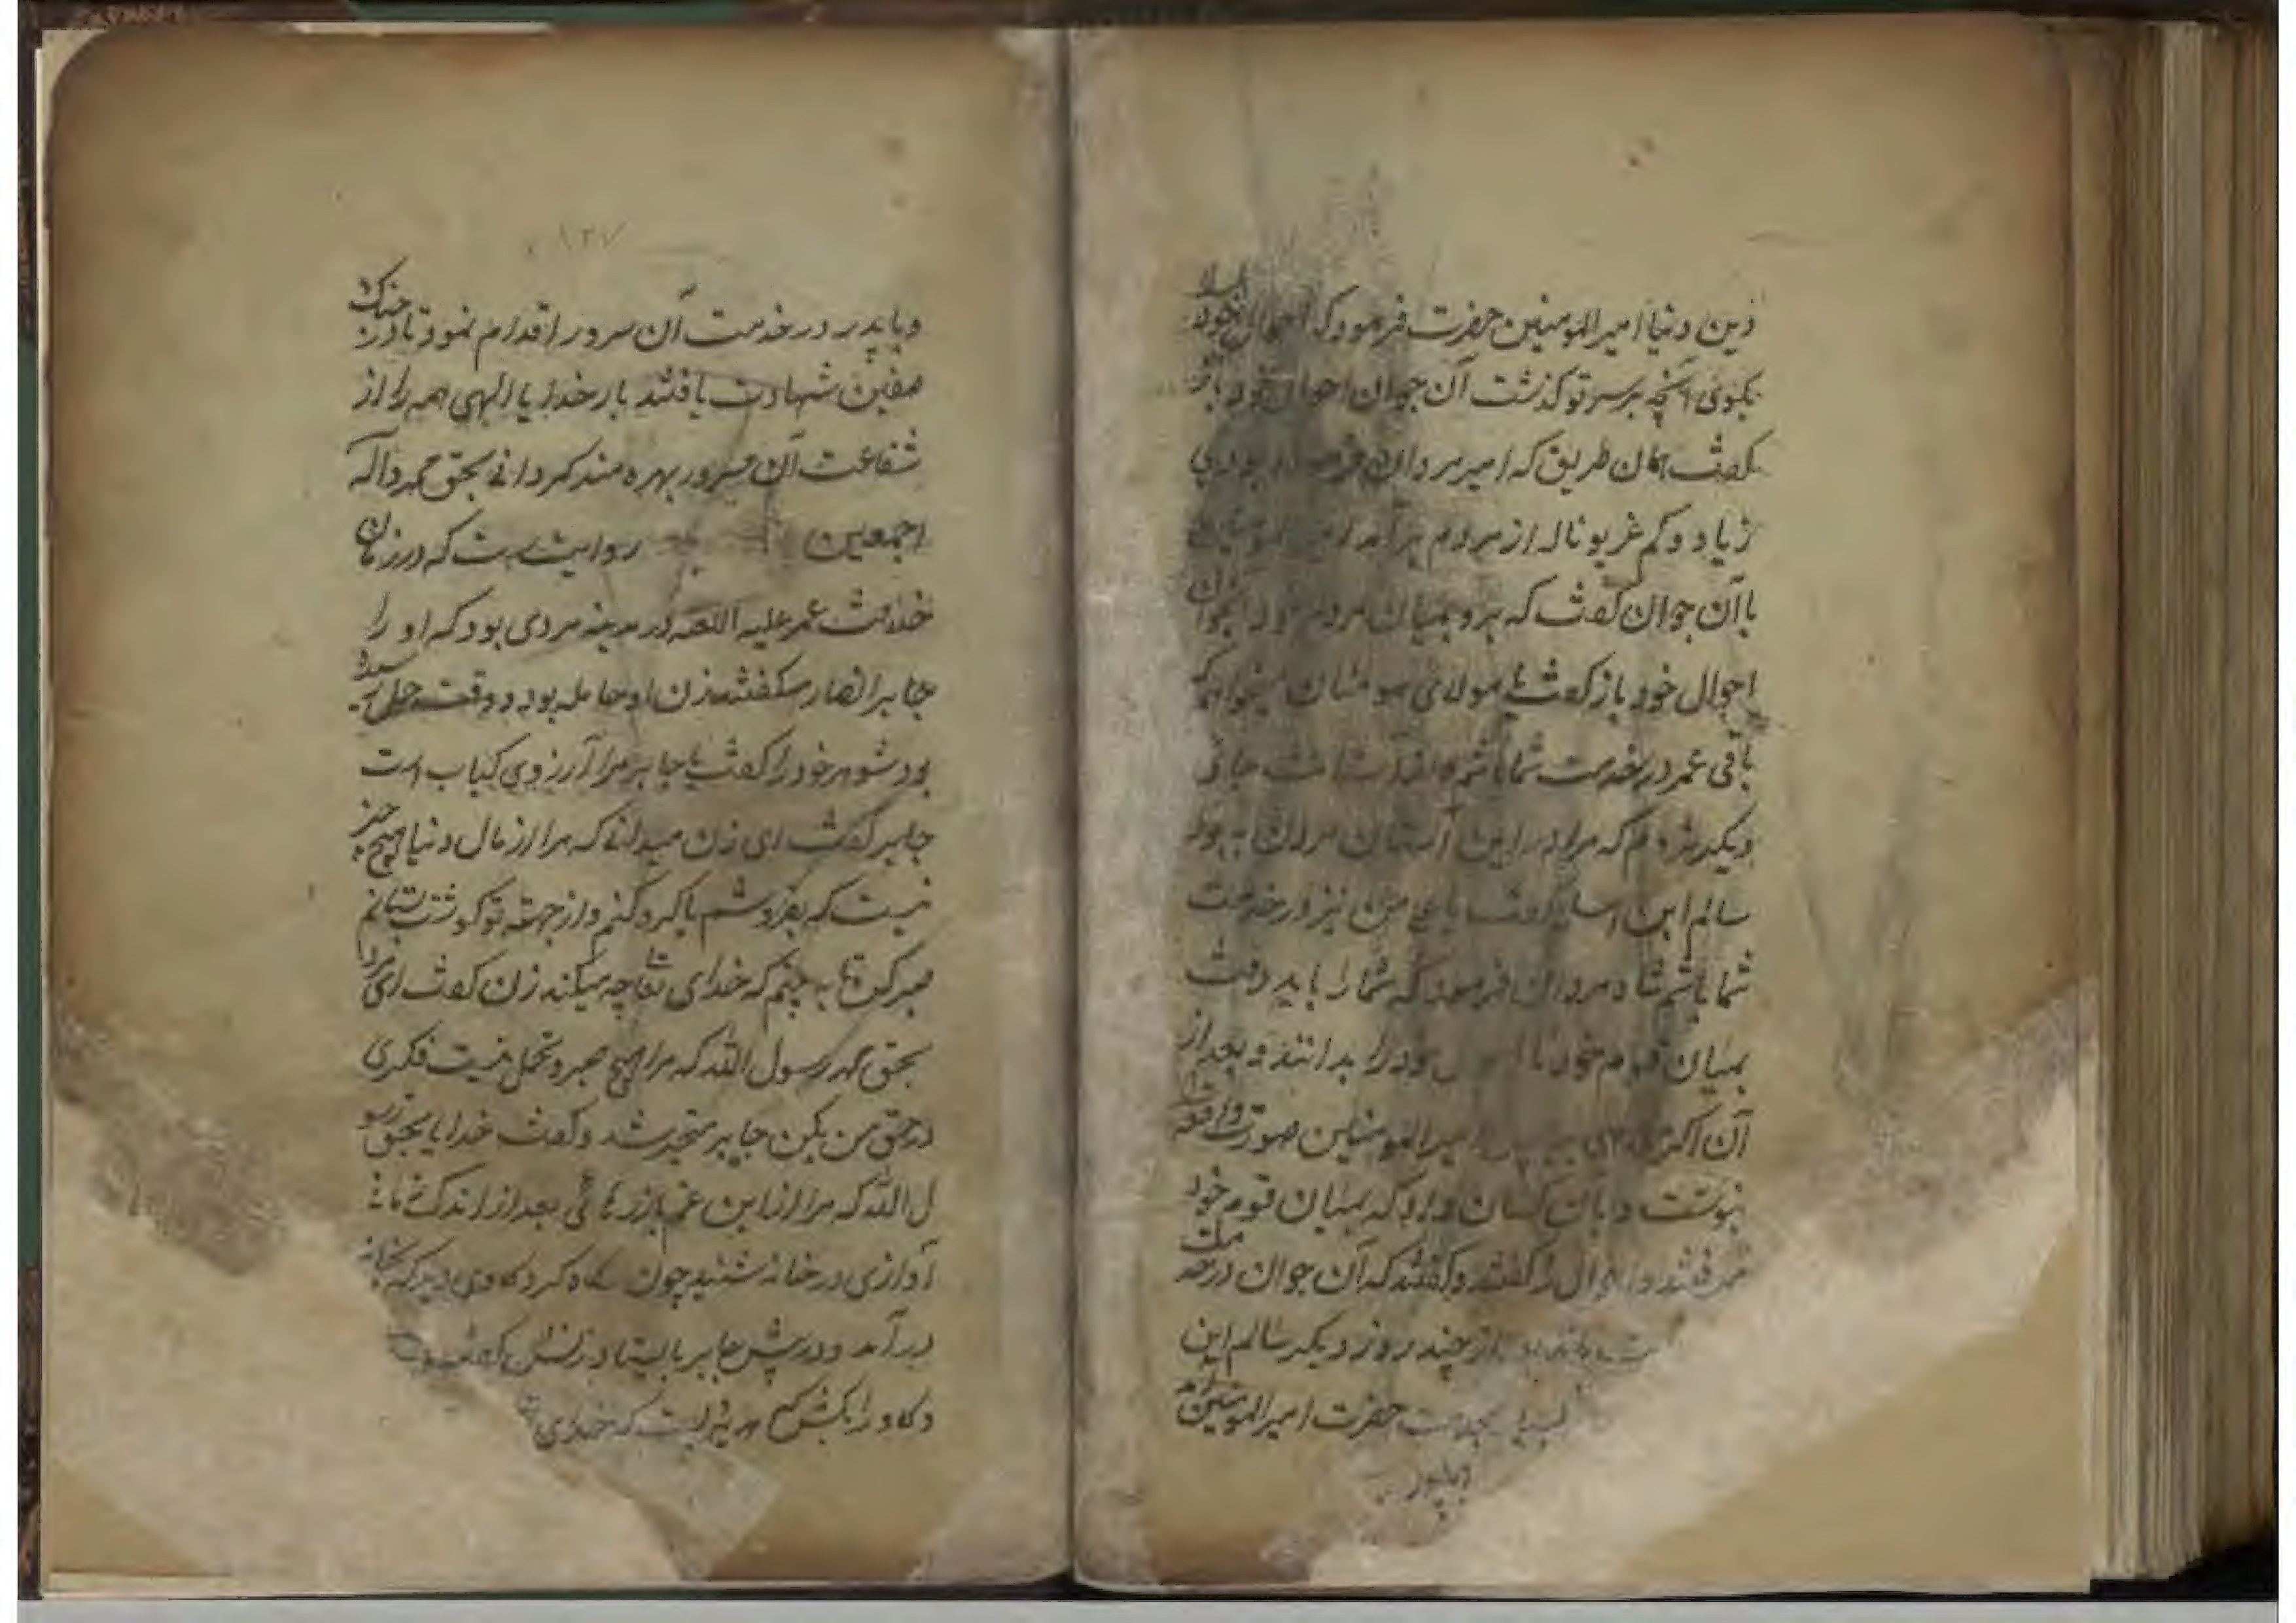 دین و دنیا امیرالمومنین حضرت فرمود که احوال خود
بکوی آنچه بر سر تو کذشت آن جوان احوال خود باز
کفت همان طریق که امیر مردان فرموده بودی
زیاد و کم غریو ناله از مردم برآمد
با آن جوان کفت که برو بمیان مردم خود
احوال خود باز کفت یا مولای مومنان میخواهم که
باقی عمر در خدمت شما باشم جای
دیکر نروم که مرا در این آستان مردن به بود
سالم ابن کفت یا علی من نیز در خدمت
شما باشم شاه مردان فرمود که شما را باید رفت
بمیان قوم خود تا خود را بدانند و بعد از
آن امیرالمومنین صورت واقعه
نوشت و بآن کسان داد که بمیان قوم خود
رفتند و احوال کفتند و کفتند که آن جوان در خدمت
از چند روز دیکر سالم ابن
بخدمت حضرت امیرالمومنین آمد
وباپدر
وباپدر در خدمت آن سرور اقدام نمود تا در جنک
صفین شهادت یافتند بار خدایا الهی همه را از
شفاعت آن سرور بهره مند کردانی بحق محمد و آله
اجمعین روایت است که در زمان
خلافت عمر علیه اللعنه در مدینه مردی بود که او را
جابر انصار میکفتند زن او حامله بود و وقت حمل رسیده
بود شوهر خود را کفت یا جابر مرا آرزوی کباب است
جابر کفت ای زن میدانی که مرا از مال دنیا هیچ چیز
نیست که بفروشم یا کرو کنم و از جهت تو کوشت بستانم
صبر کن تا به بینم که خدای تعا چه میکند زن کفت ای مرد
بحق محمد رسول الله که مرا هیچ صبر و تحمل نیست فکری
در حق من بکن جابر متحیر شد و کفت خدایا بحق رسو
ل الله که مرا از این غم باز رهائی بعد از اندک زمانی
آوازی در خانه شنید چون نکاه کرد کاوی دید که بخانه
درآمد و در پیش جابر بایستاد زنش کفت
و کاو را بکش که خدای